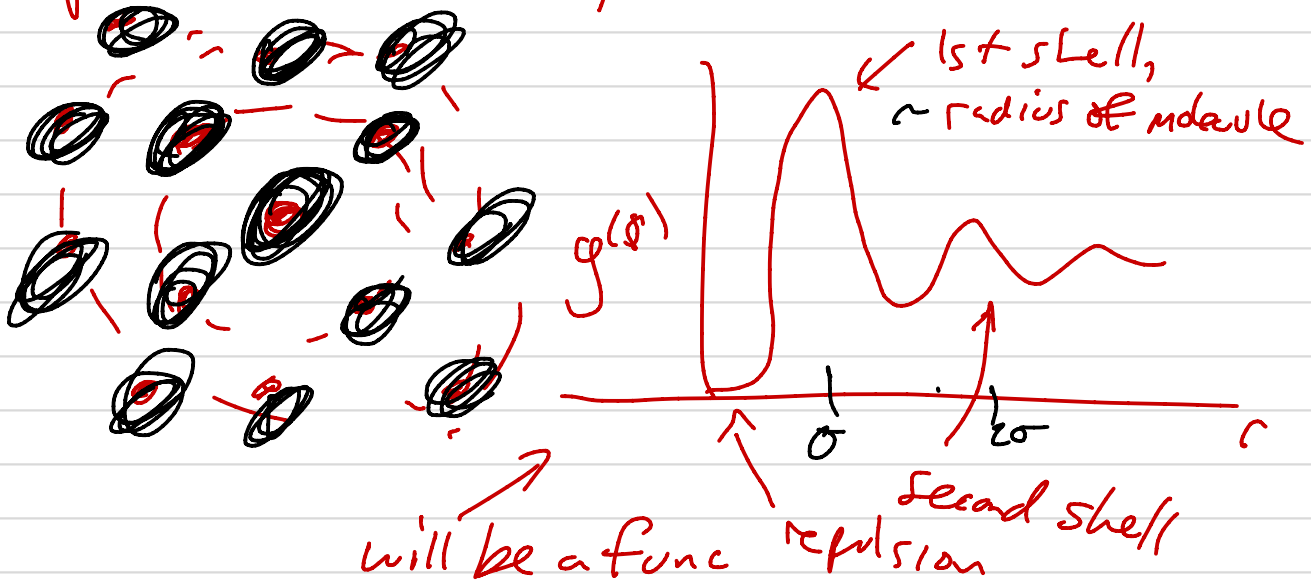 1st shell,
~ radius of molecule
g(r)
σ
2σ
r
second shell
repulsion
will be a func